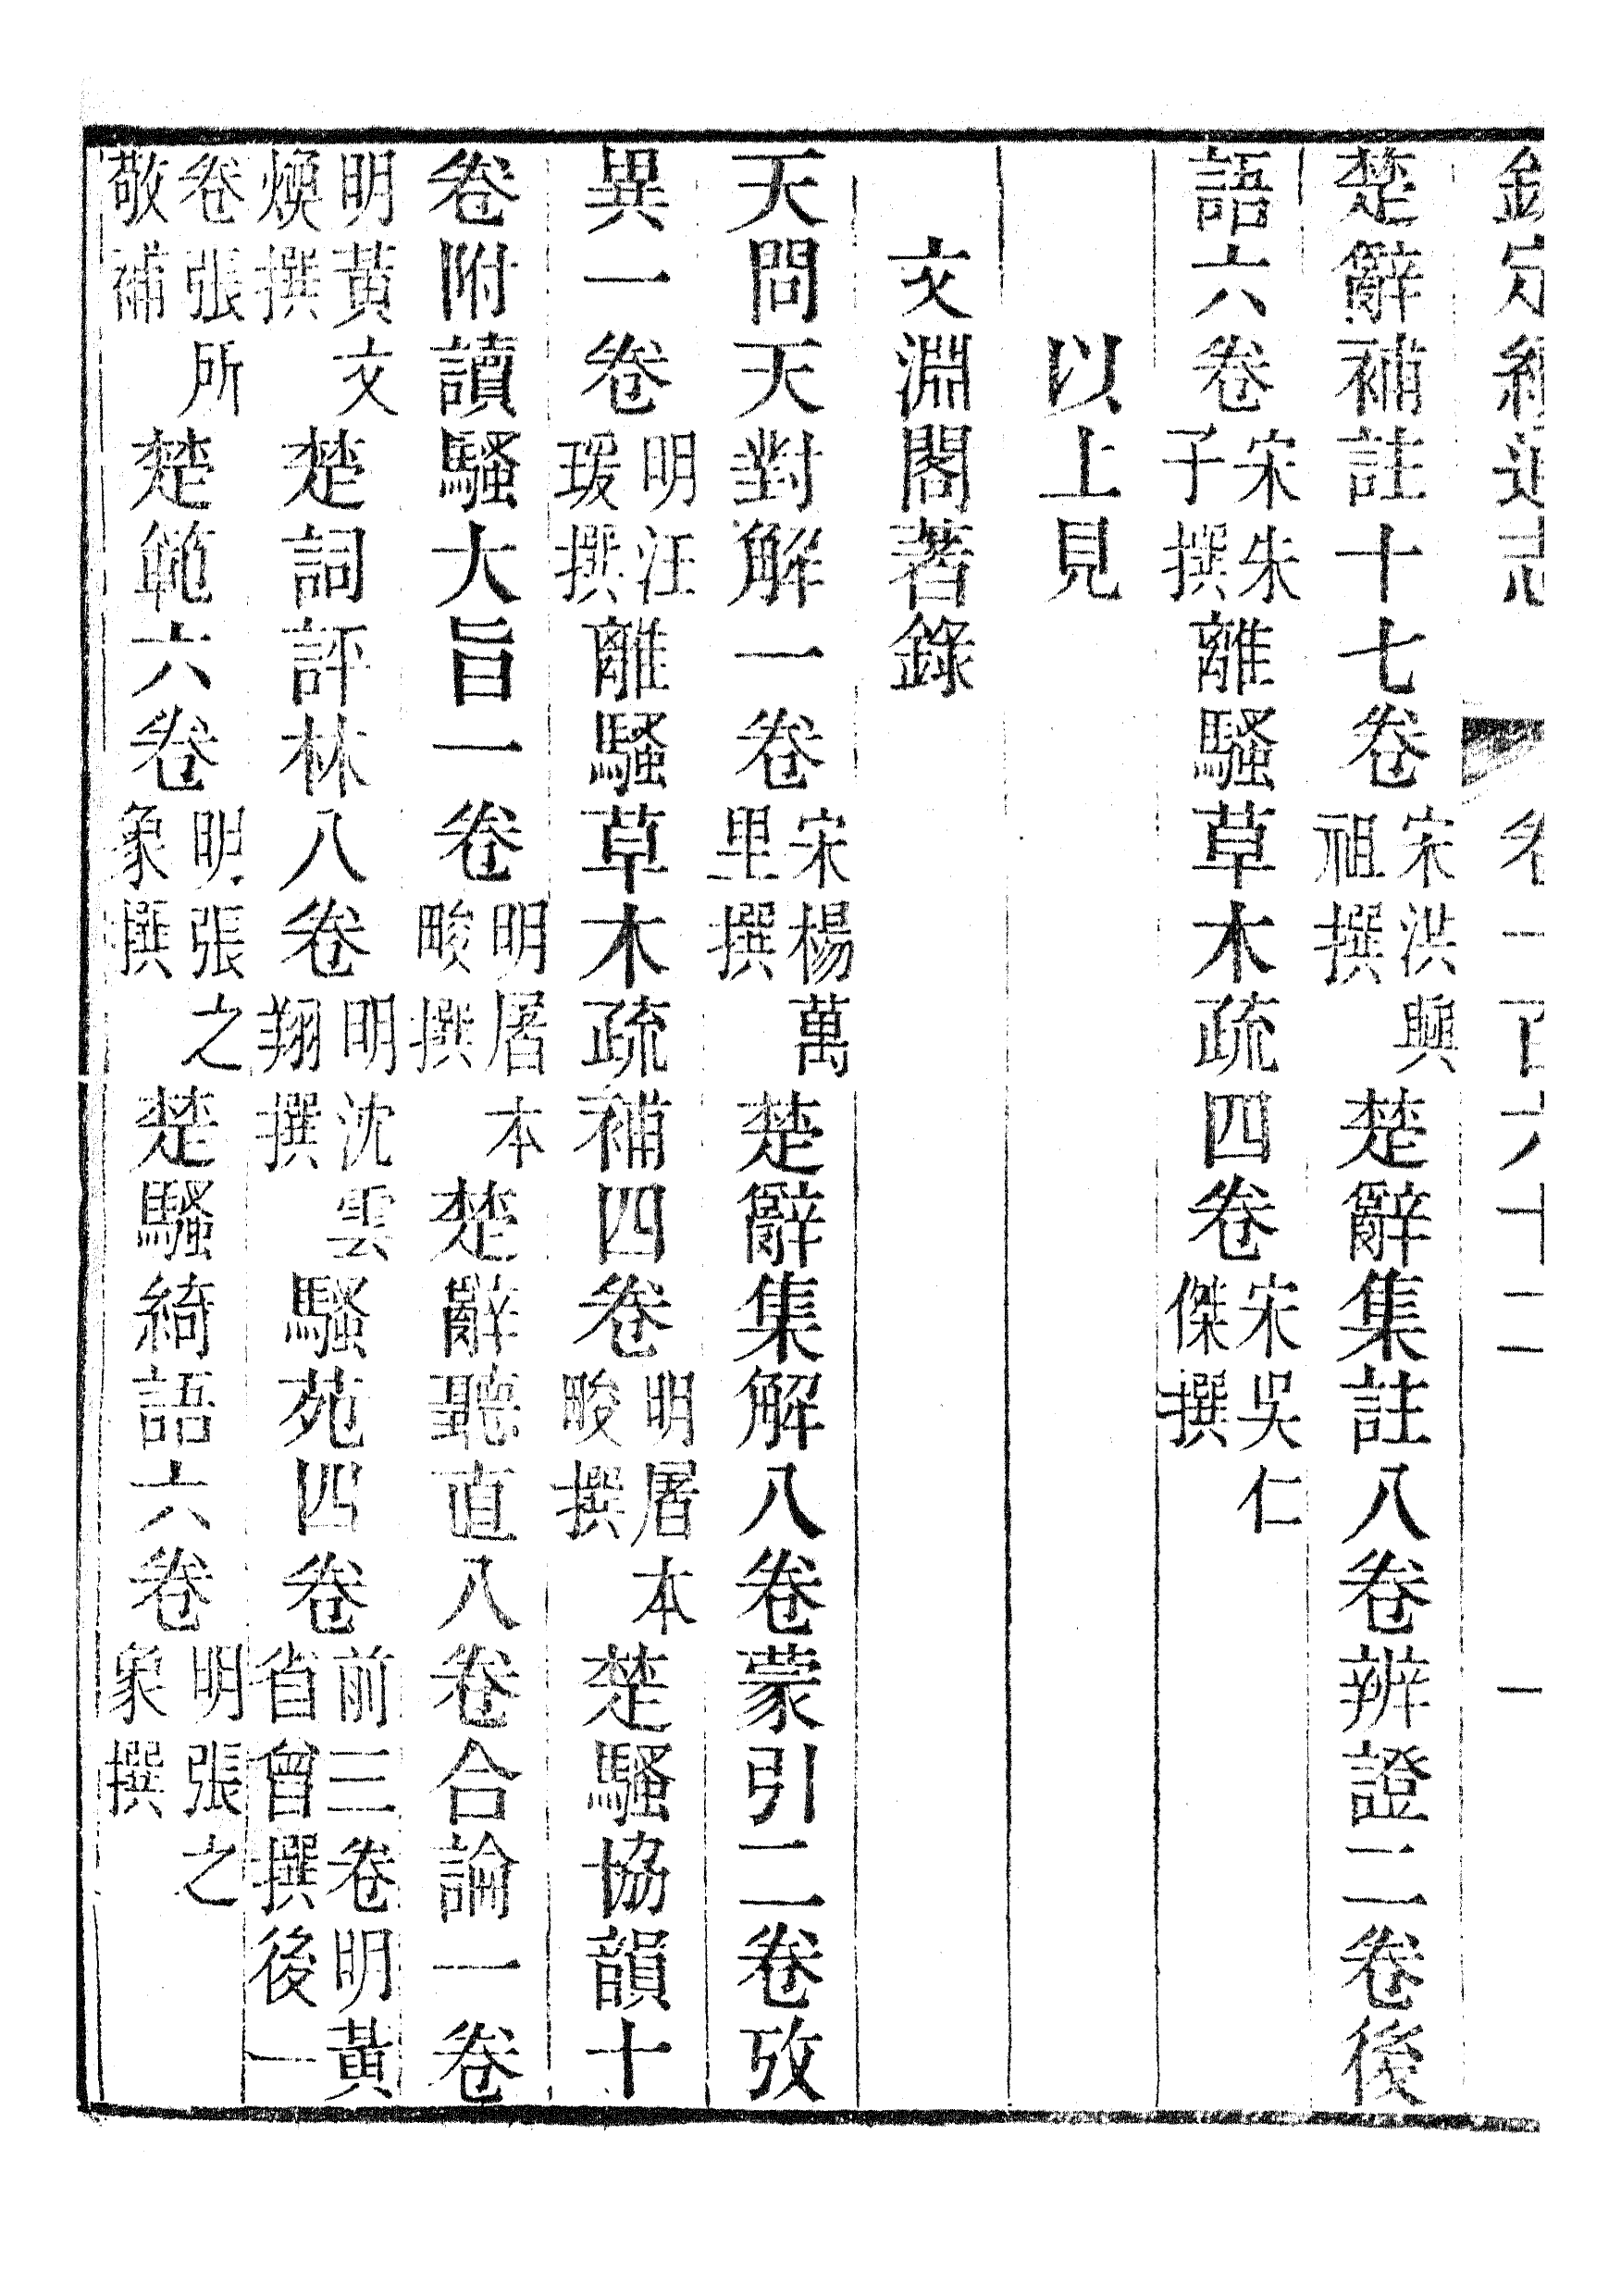 欽定續通志 卷一百六十二 一
楚辭補註十七卷宋洪興祖撰楚辭集註八卷辨證二卷後
語六卷宋朱子撰離騷草木疏四卷宋吳仁傑撰
以上見
文淵閣著錄
天問天對解一卷宋楊萬里撰楚辭集解八卷蒙引二卷攷
異一卷明汪瑗撰離騷草木疏補四卷明屠本畯撰楚騷協韻十
卷附讀騷大旨一卷明屠本畯撰楚辭聽直八卷合論一卷
明黃文煥撰楚詞評林八卷明沈雲翔撰騷苑四卷前三卷明黃省曾撰後一
卷張所敬補楚範六卷明張之象撰楚騷綺語六卷明張之象撰